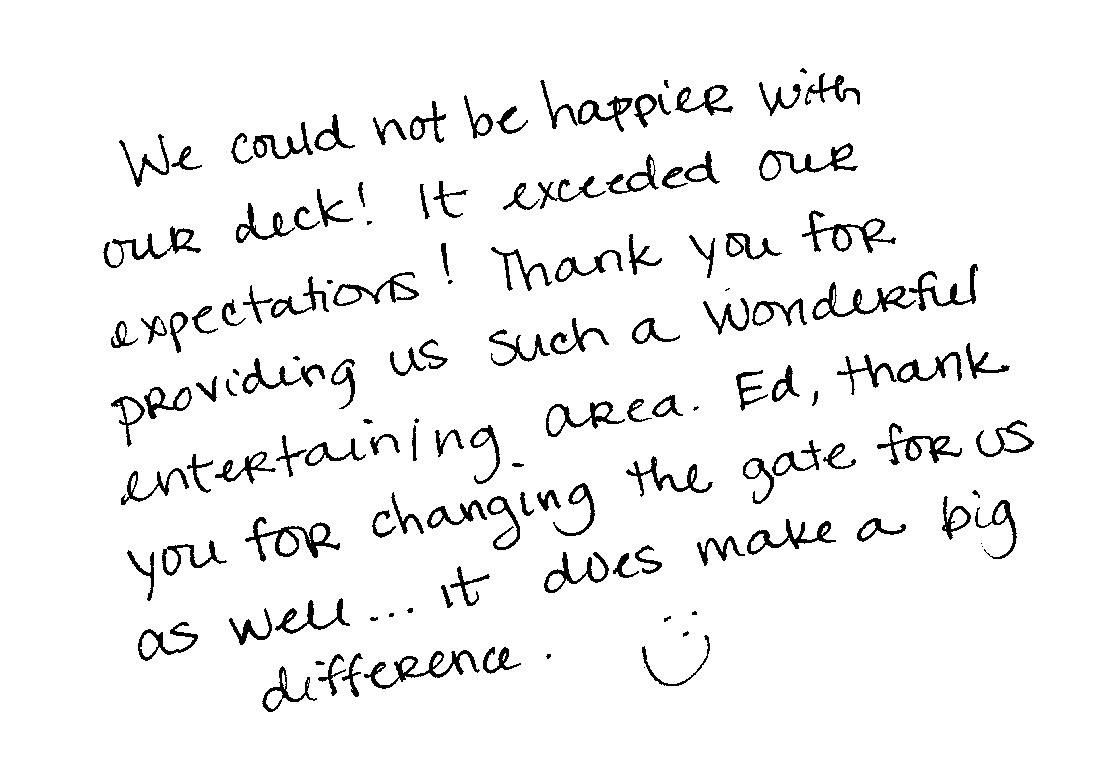 We could not be happier with
our deck! It exceeded our
expectations! Thank you for
providing us such a wonderful
entertaining area. Ed, thank
you for changing the gate for us
as well... it does make a big
difference. :)